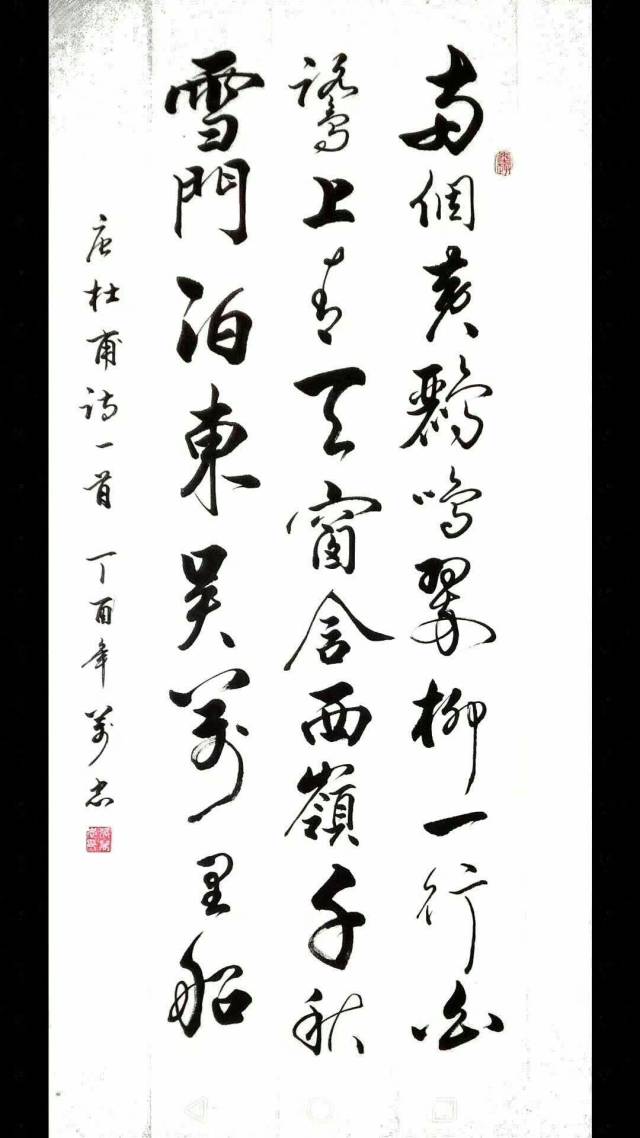 兩個黃鸝鳴翠柳一行白
鷺上青天窗含西嶺千秋
雪門泊東吳萬里船
唐杜甫詩一首 丁酉年 萬忠